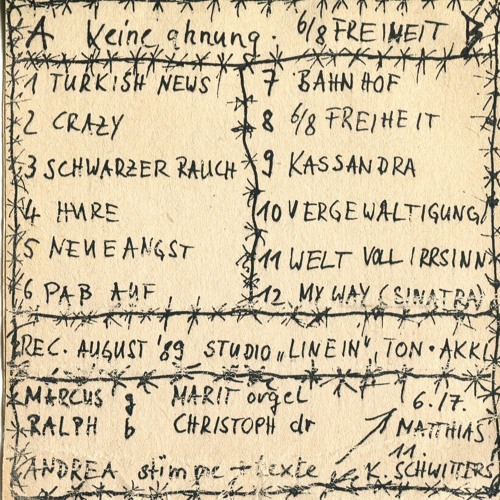 A Keine ahnung. 6/8 FREIHEIT B
1 TURKISH NEWS
2 CRAZY
3 SCHWARZER RAUCH
4 HURE
5 NEUE ANGST
6 PAß AUF
7 BAHNHOF
8 6/8 FREIHEIT
9 KASSANDRA
10 VERGEWALTIGUNG
11 WELT VOLL IRRSINN
12 MY WAY (SINATRA)
REC. AUGUST '89 STUDIO „LINE IN", TON + AKKU
MARCUS g MARIT orgel
RALPH b CHRISTOPH dr
ANDREA stimme + texte
6./7.
MATTHIAS
11.
K. SCHWITTERS